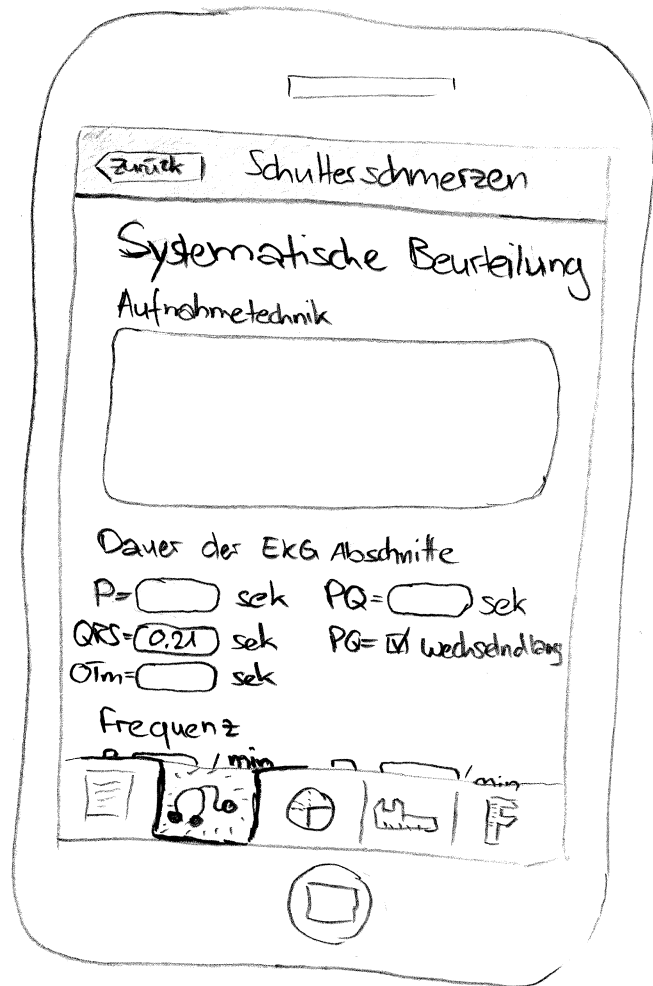 Zurück Schulterschmerzen
Systematische Beurteilung
Aufnahmetechnik
Dauer der EKG Abschnitte
P= sek PQ= sek
QRS= 0.21 sek PQ= wechselnd lang
QTm= sek
Frequenz
/min /min